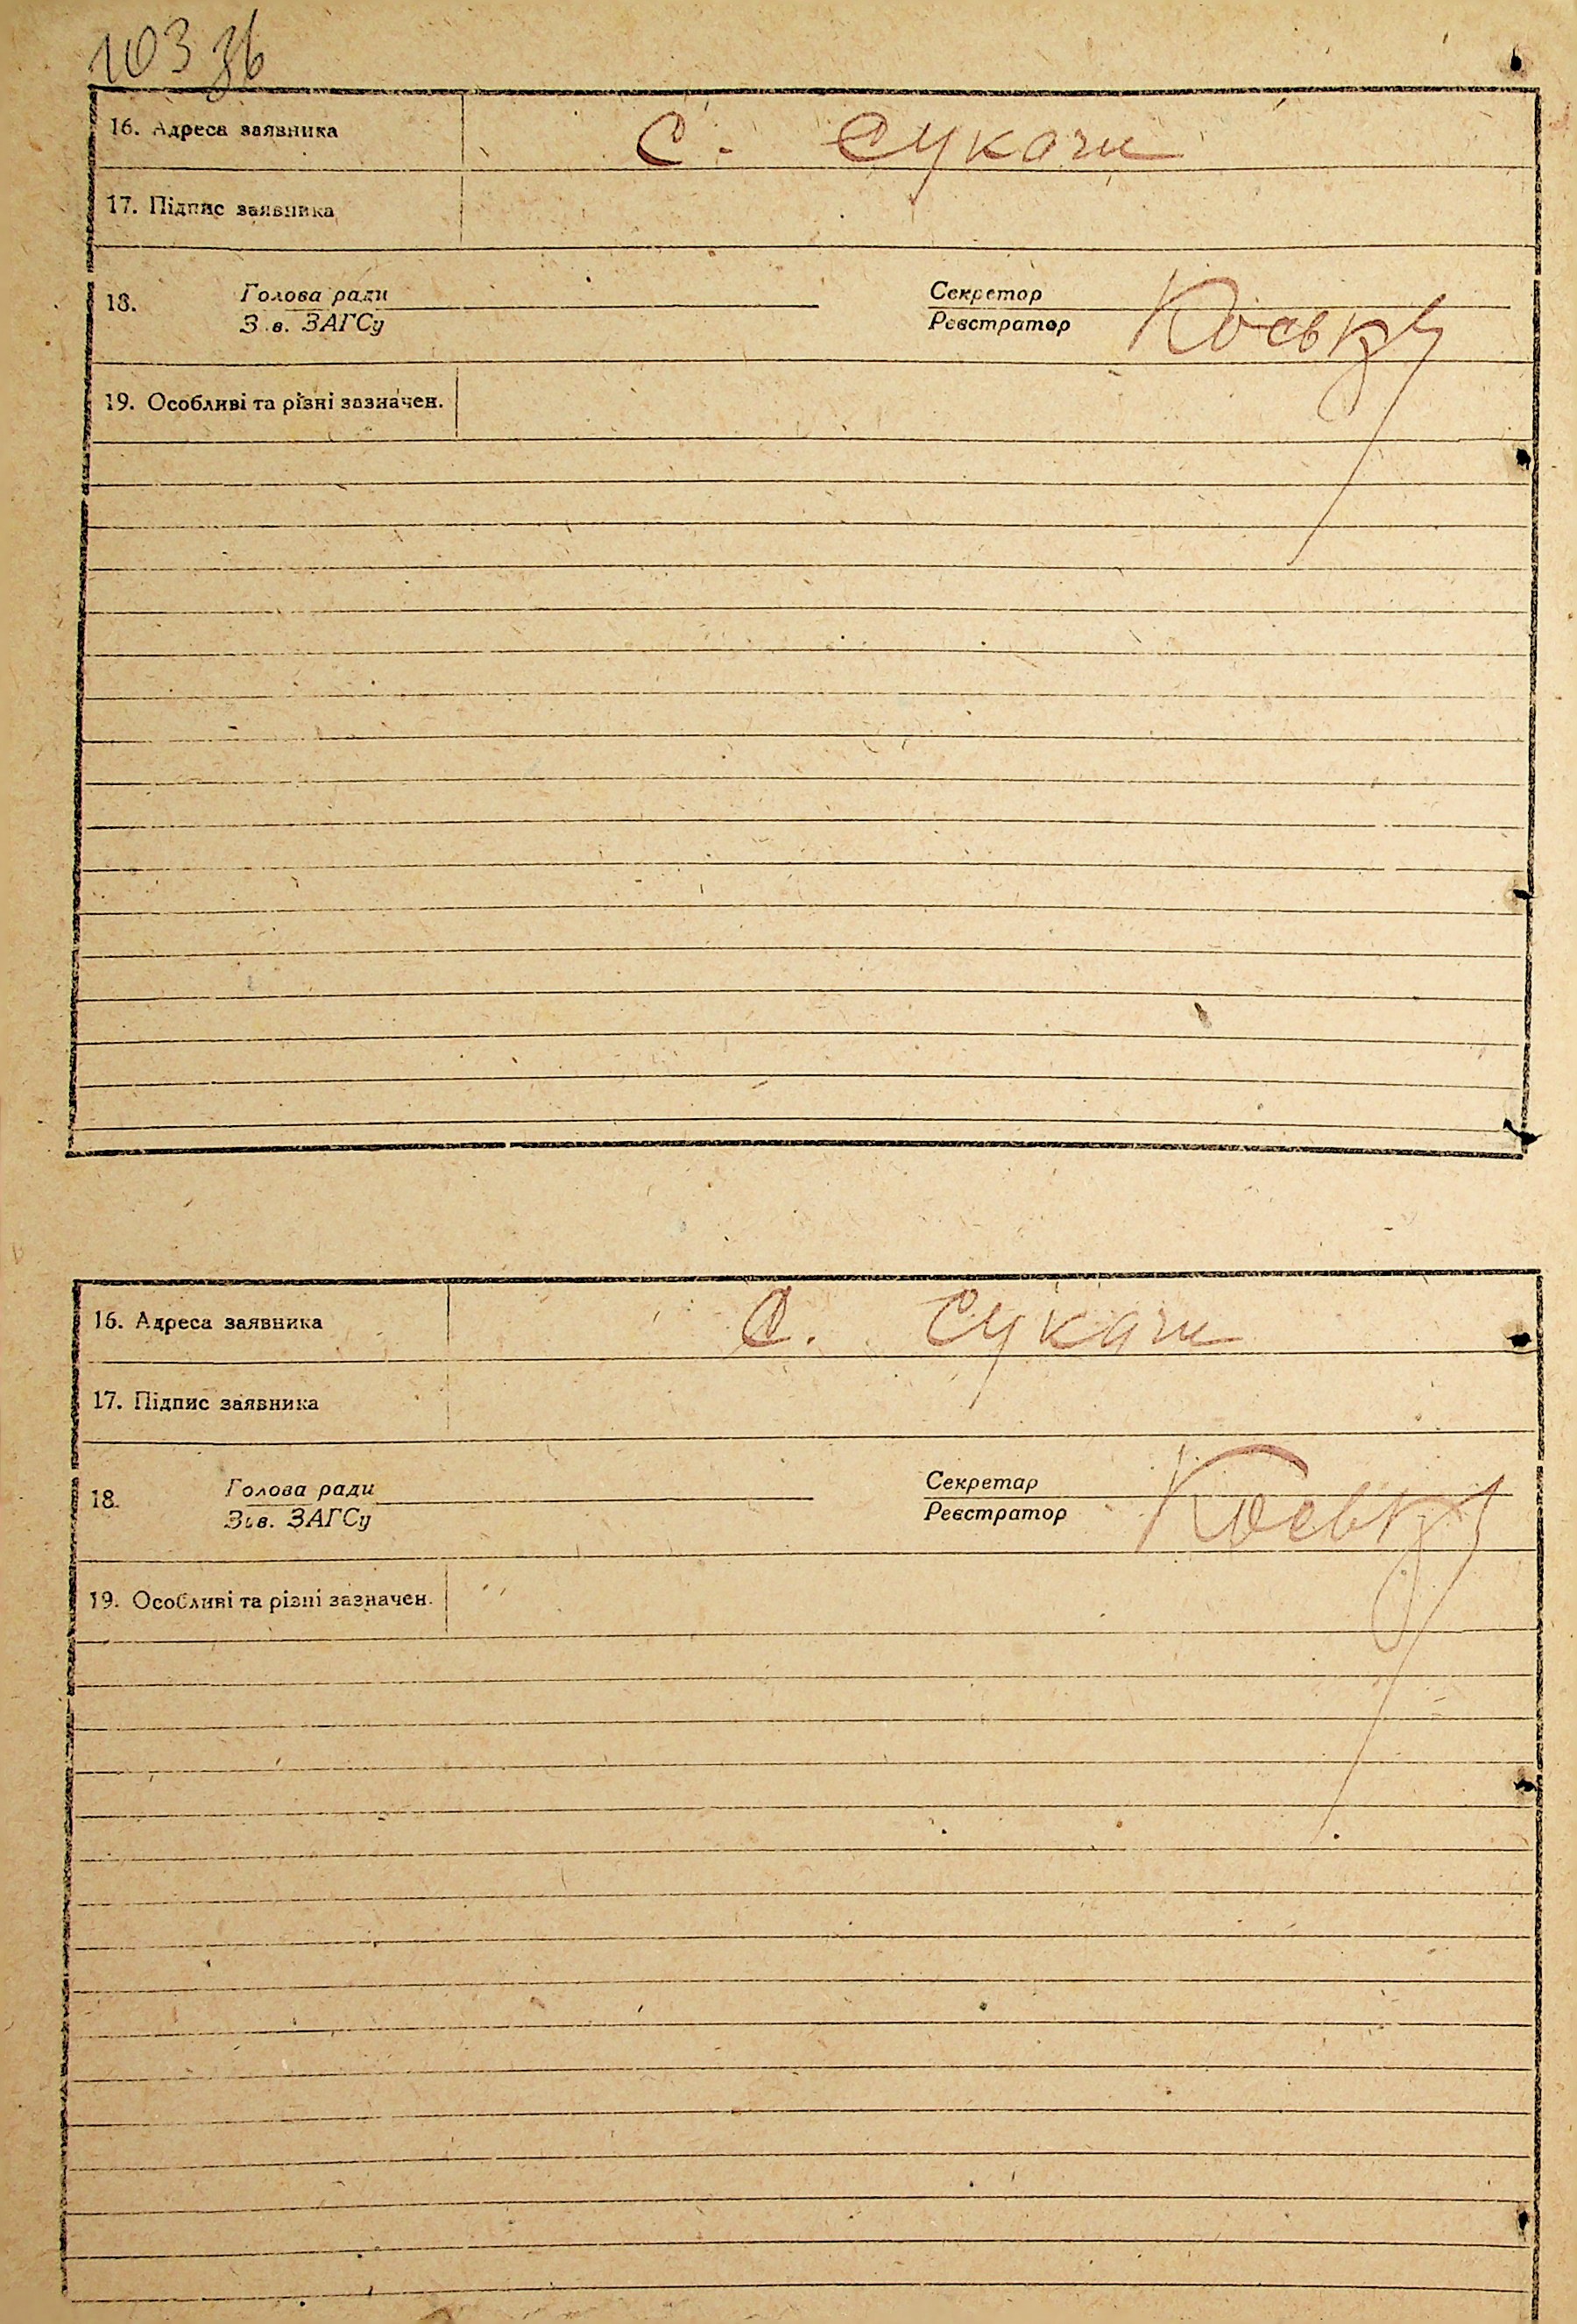 103 зв
16. Адреса заявника С. Сукачи
17. Підпис заявника
18. Голова ради Секретар
Зав. ЗАГСу Реєстратор
19. Особливі та різні зазначен.
16. Адреса заявника С. Сукачи
17. Підпис заявника
18. Голова ради Секретар
Зав. ЗАГСу Реєстратор
19. Особливі та різні зазначен.